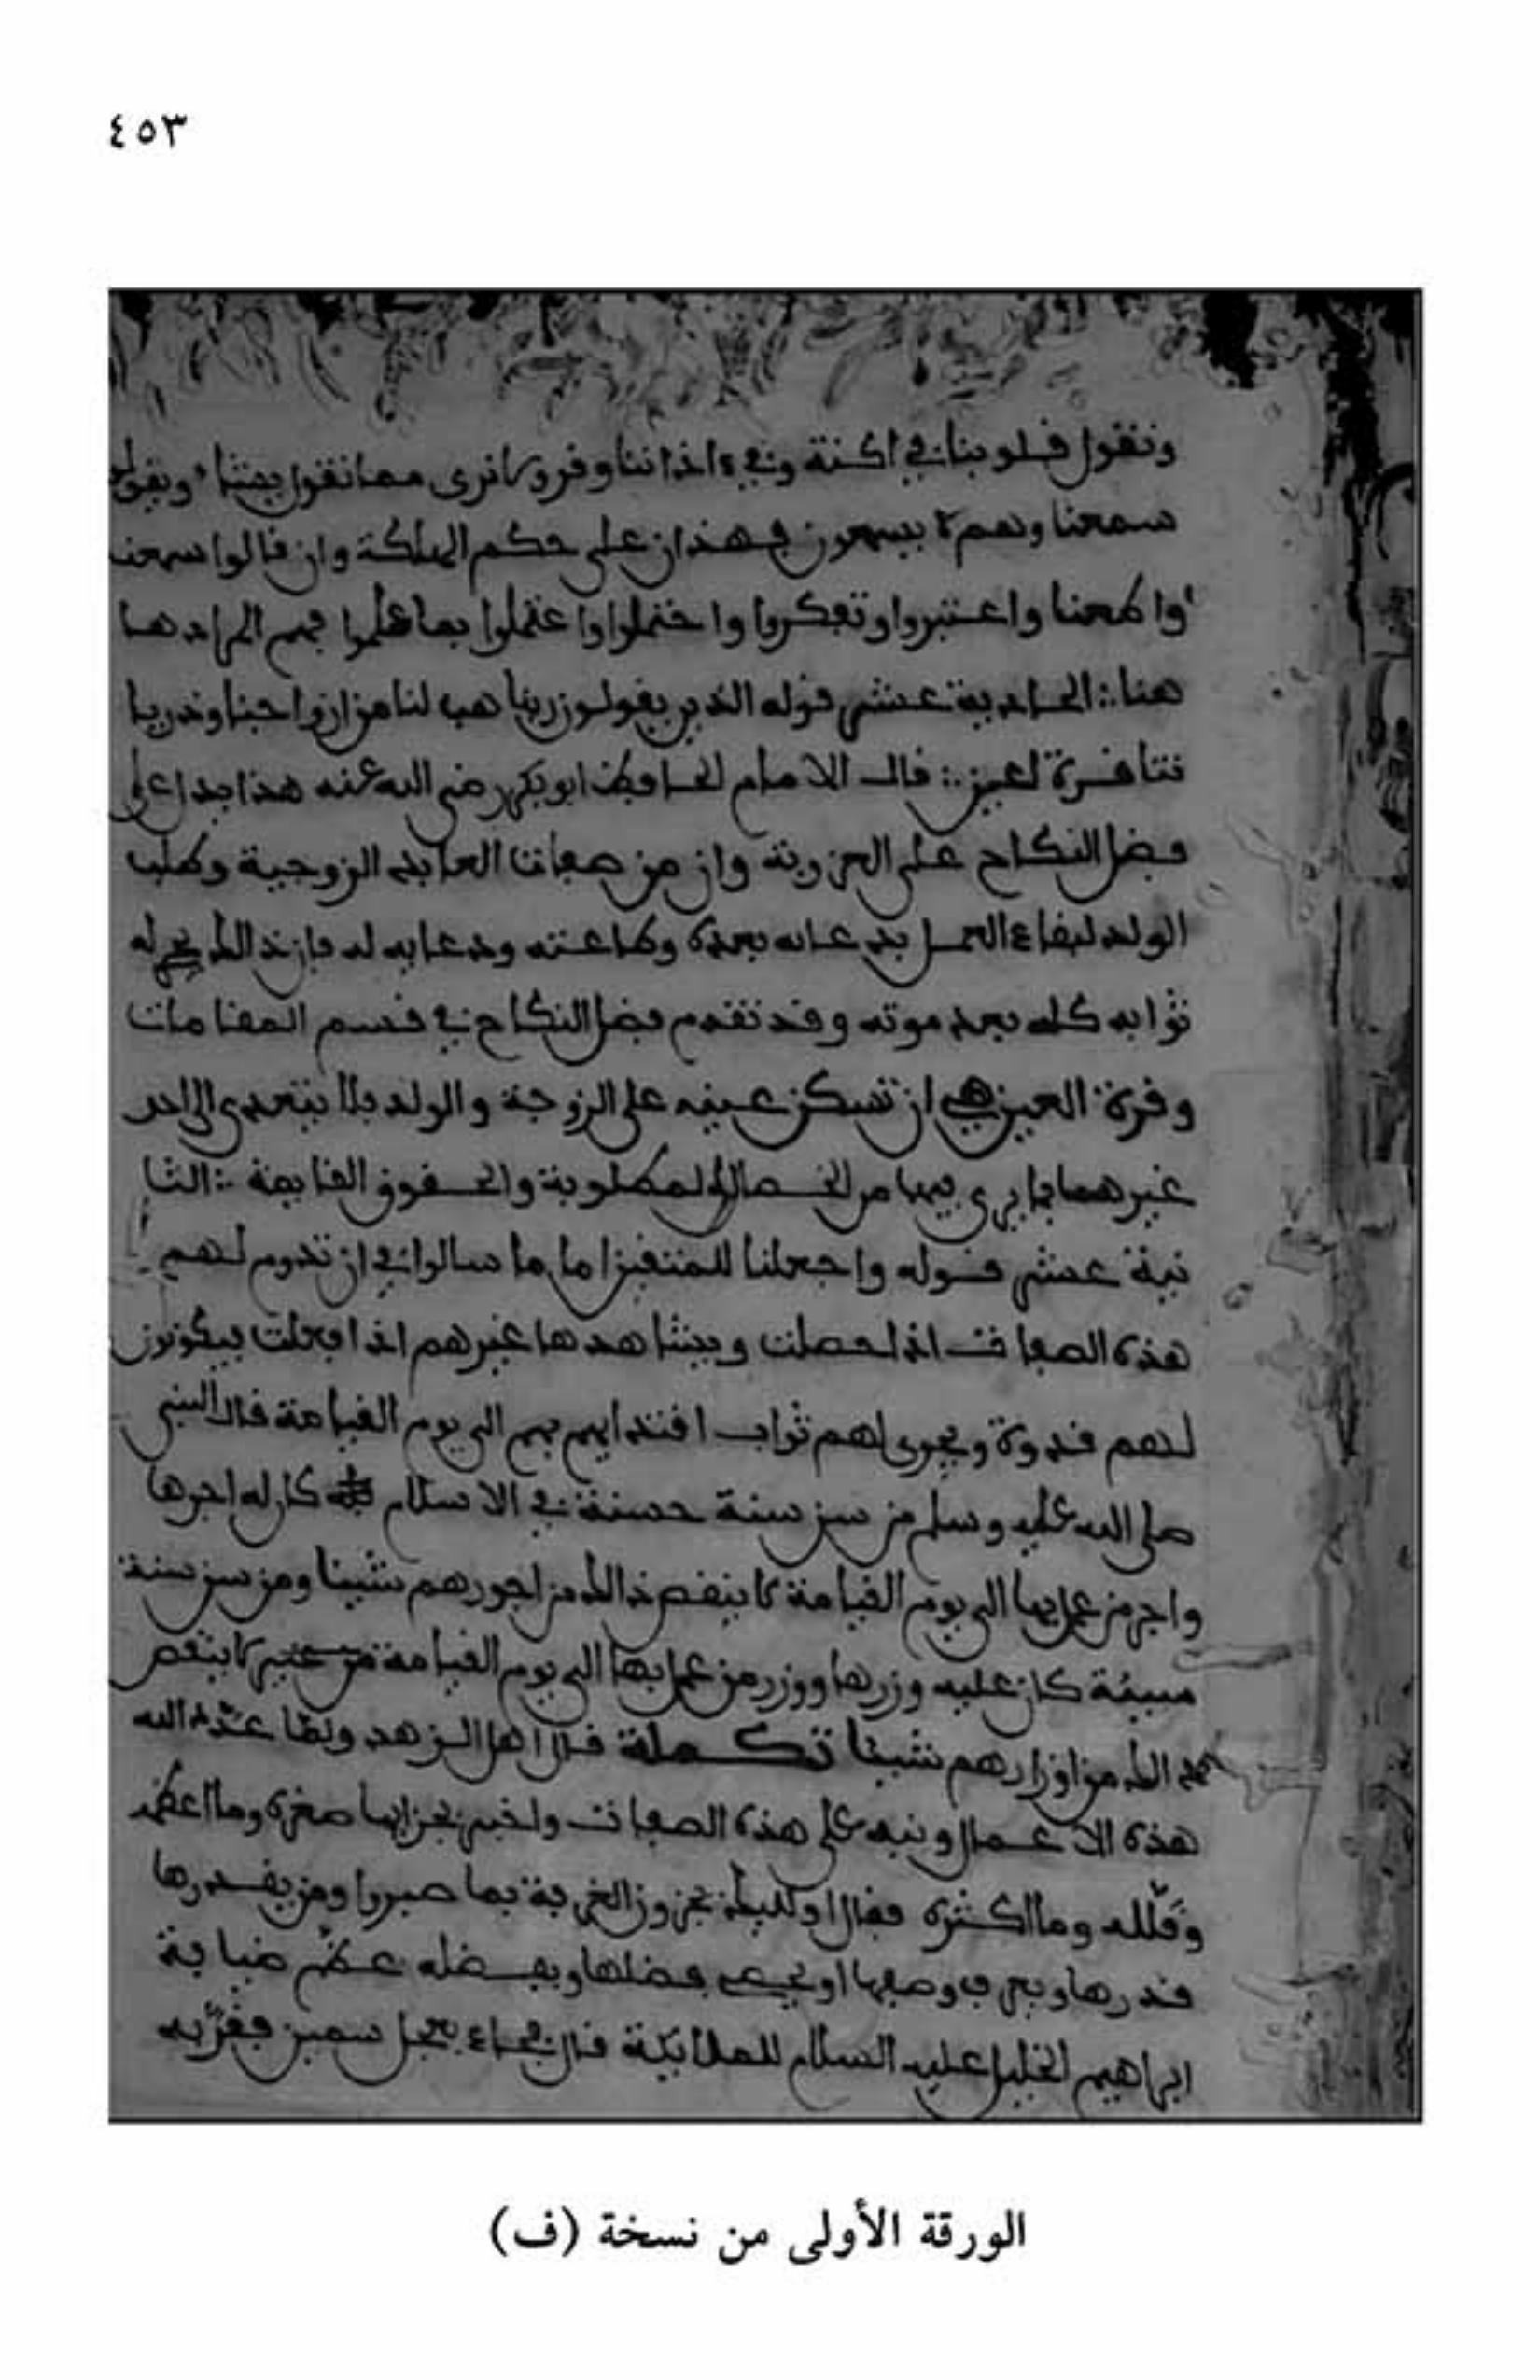 ٤٥٣
وتقول قلوبنا في اكنة وفي ءاذاننا وقر ولا نرى مما تقول بيننا ويقولو
سمعنا وهم لا يسمعون فهذان على حكم الهلكة وان قالوا سمعنا
واطعنا واعتبروا وتفكروا واحتملوا واعتملوا بما علموا فهم المراد ها
هنا الحادية عشر قوله الذين يقولون ربنا هب لنا من ازواجنا وذريا
تنا قرة اعين قال الامام الحافظ ابو بكر رضي الله عنه هذا يدل على
فضل النكاح على العزوبة وان من صفات العابد الزوجية وطلب
الولد لبقاء العمل بدعائه بعده وطاعته ودعايه له فان ذلك يجري له
ثوابه كله بعد موته وقد تقدم فضل النكاح في قسم المقامات
وقرة العين هي ان تسكن عينه على الزوجة والولد فلا يتعدى الى احد
غيرهما بما يرى فيهما من الخصال المطلوبة والحقوق القايمة الثا
نية عشر قوله واجعلنا للمتقين اماما سالوا في ان تدوم لهم
هذه الصفات اذا حصلت ويشاهدها غيرهم اذا فعلت فيكونون
لهم قدوة ويجري لهم ثواب اقتدايهم بهم الى يوم القيامة قال النبي
صلى الله عليه وسلم من سن سنة حسنة في الاسلام كان له اجرها
واجر من عمل بها الى يوم القيامة لا ينقص ذلك من اجورهم شيئا ومن سن سنة
سيئة كان عليه وزرها ووزر من عمل بها الى يوم القيامة من غير لا ينقص
ذلك من اوزارهم شيئا تكملة قال اهل الزهد ولما عدد الله
هذه الاعمال ونبه على هذه الصفات واخبر بجزايها صغره وما اعظمه
وقلله وما اكثره فقال اوليك يجزون الغرفة بما صبروا ومن يقدرها
قدرها ويعرف وصفها او يحصي فضلها وبفضله عظم ضيافة
ابراهيم الخليل عليه السلام للملائكة قال فجاء بعجل سمين فقربه
الورقة الأولى من نسخة (ف)